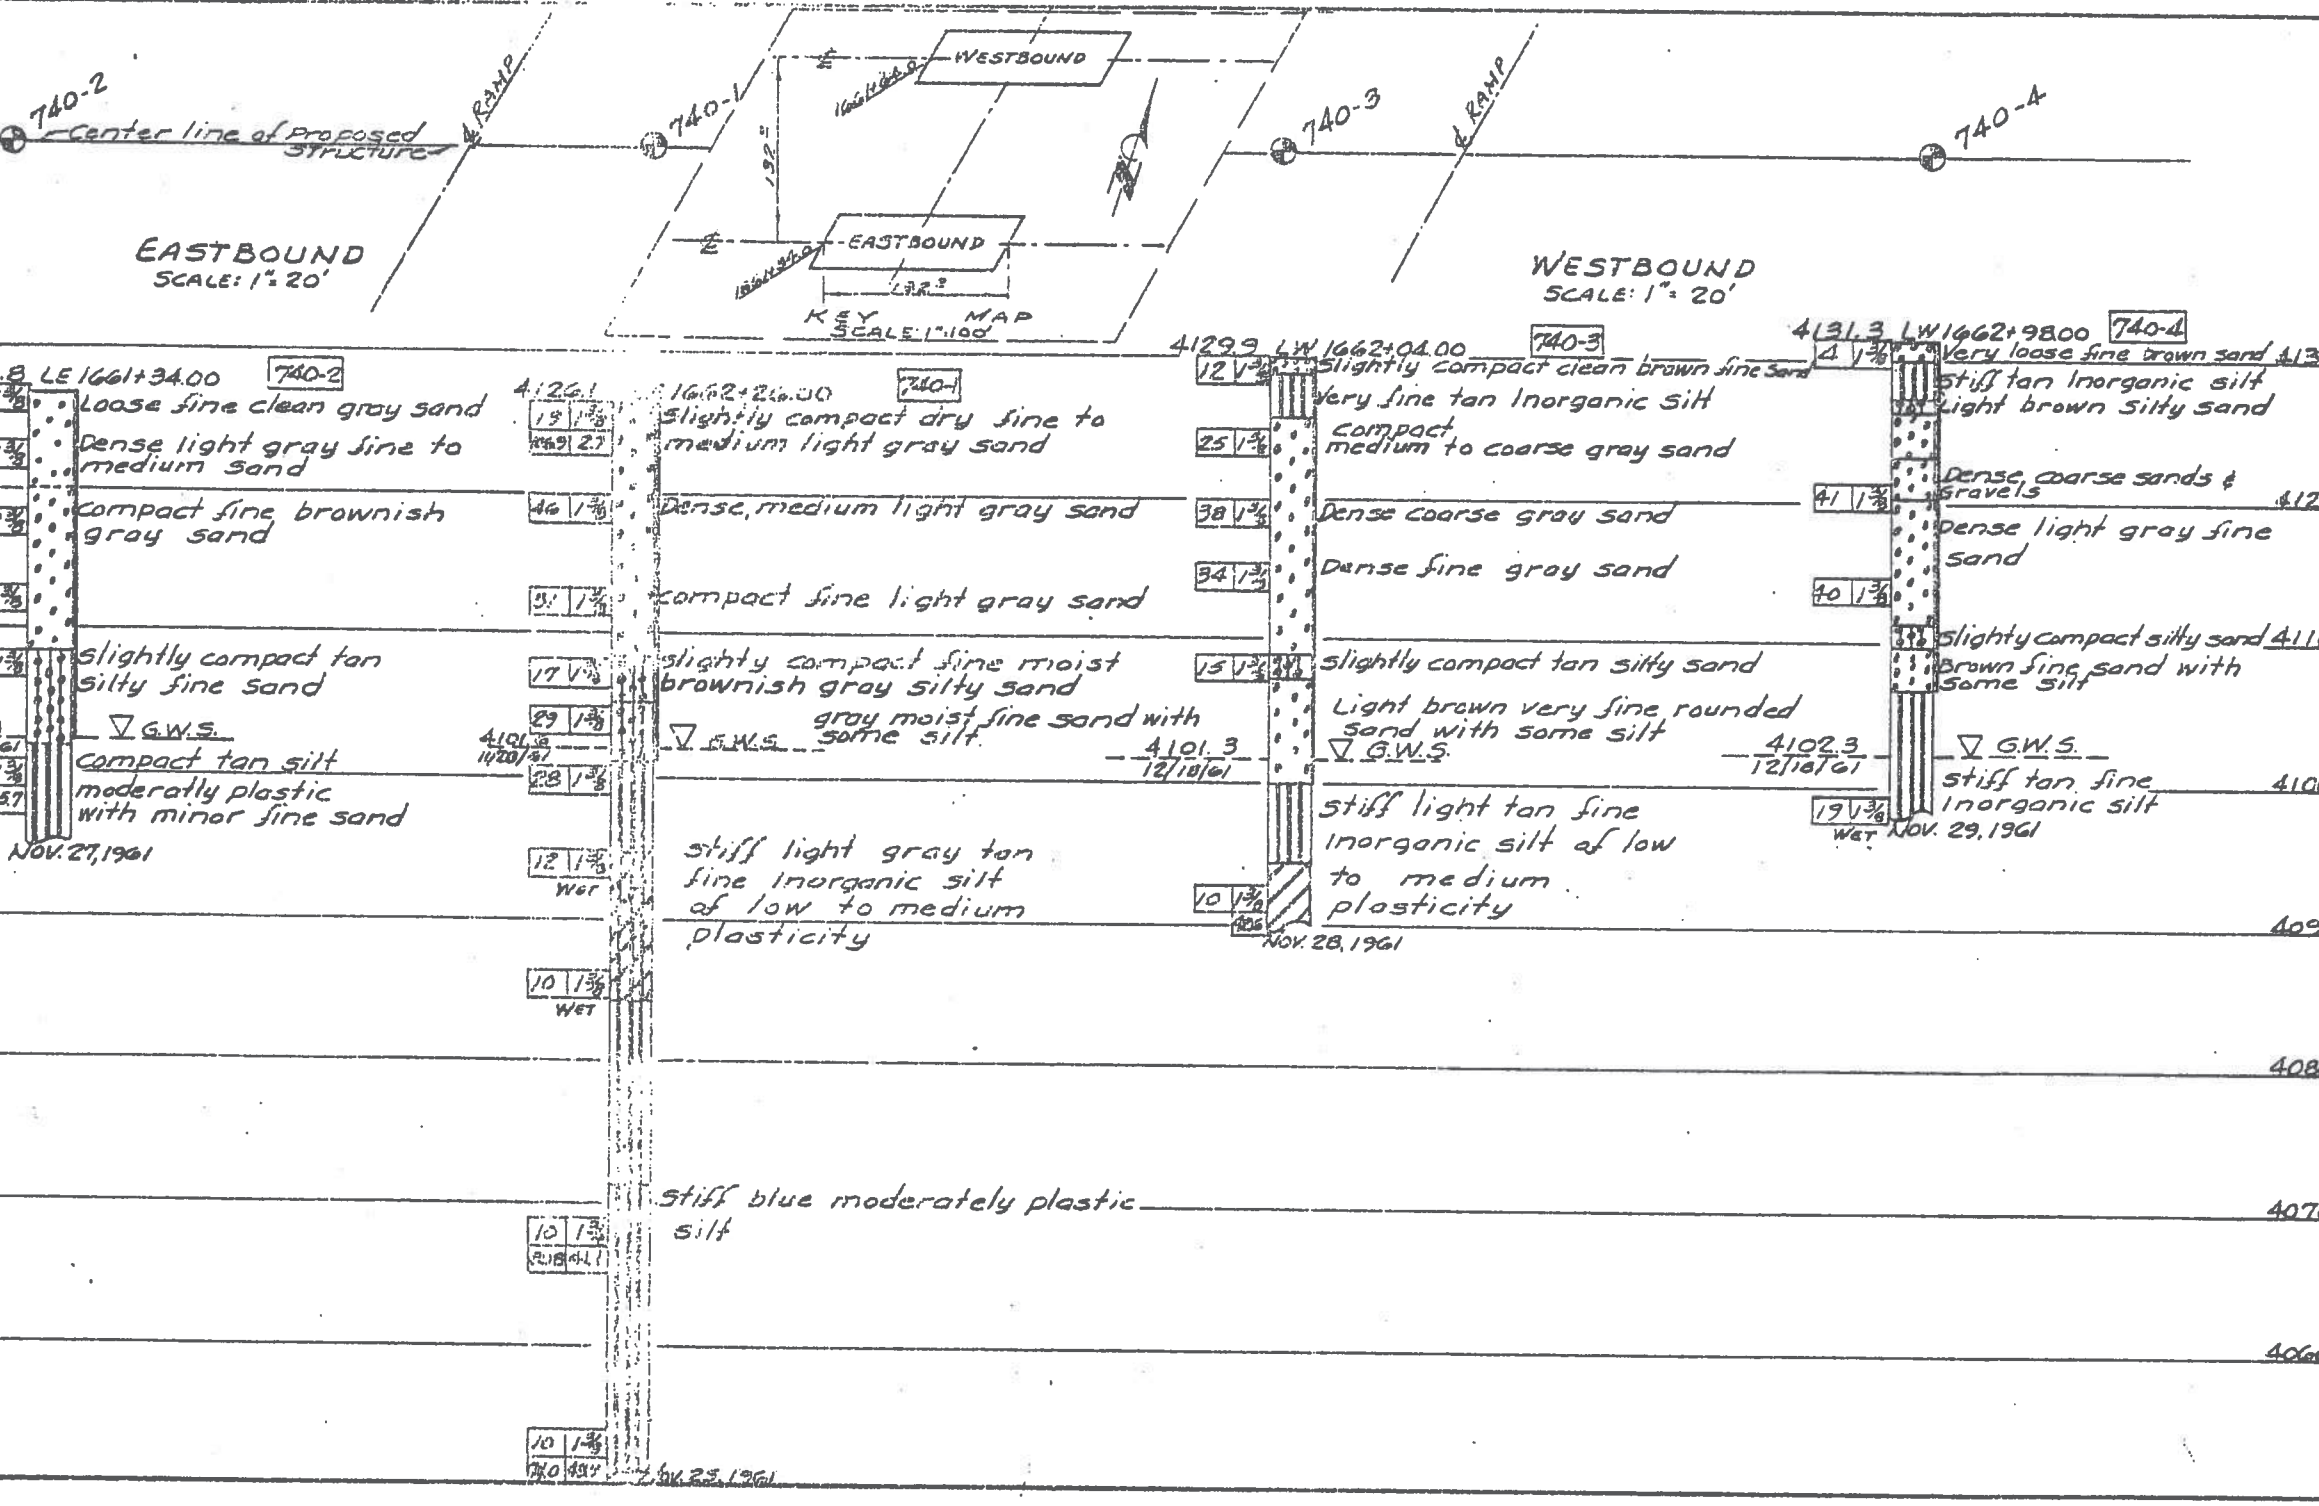 740-2
Center line of Proposed
Structure
℄ RAMP
740-1
WESTBOUND
EASTBOUND
KEY MAP
SCALE: 1"=100'
740-3
℄ RAMP
740-4
EASTBOUND
SCALE: 1"= 20'
WESTBOUND
SCALE: 1"= 20'
.8 LE 1661+34.00 740-2
Loose fine clean gray sand
Dense light gray fine to
medium sand
Compact fine brownish
gray sand
Slightly compact tan
silty fine sand
G.W.S.
Compact tan silt
moderatly plastic
with minor fine sand
NOV. 27, 1961
4126.1 1662+26.00 740-1
19 1 3/8
Slightly compact dry fine to
medium light gray sand
46 1 3/8
Dense, medium light gray sand
31 1 3/8
Compact fine light gray sand
17 1 3/8
Slighty compact fine moist
brownish gray silty sand
29 1 3/8
gray moist fine sand with
some silt.
G.W.S.
28 1 3/8
12 1 3/8
WET
Stiff light gray tan
fine Inorganic silt
of low to medium
plasticity
10 1 3/8
WET
Stiff blue moderately plastic
silt
10 1 3/8
10 1 3/8
1961
4129.9 LW 1662+04.00 740-3
12 1 3/8
Slightly compact clean brown fine sand
Very fine tan Inorganic silt
25 1 3/8
compact
medium to coarse gray sand
38 1 3/8
Dense coarse gray sand
34 1 3/8
Dense fine gray sand
15 1 3/8
Slightly compact tan silty sand
Light brown very fine rounded
sand with some silt
4101.3
12/18/61
G.W.S.
Stiff light tan fine
Inorganic silt of low
to medium
plasticity
10 1 3/8
NOV. 28, 1961
4131.3 LW 1662+98.00 740-4
4 1 3/8
Very loose fine brown sand 413
Stiff tan Inorganic silt
Light brown Silty sand
41 1 3/8
Dense, coarse sands &
gravels 412
Dense light gray fine
sand
40 1 3/8
Slighty compact silty sand 411
Brown fine sand with
some silt
4102.3
12/18/61
G.W.S.
Stiff tan fine
Inorganic silt
410
19 1 3/8
WET
NOV. 29, 1961
409
408
407
406